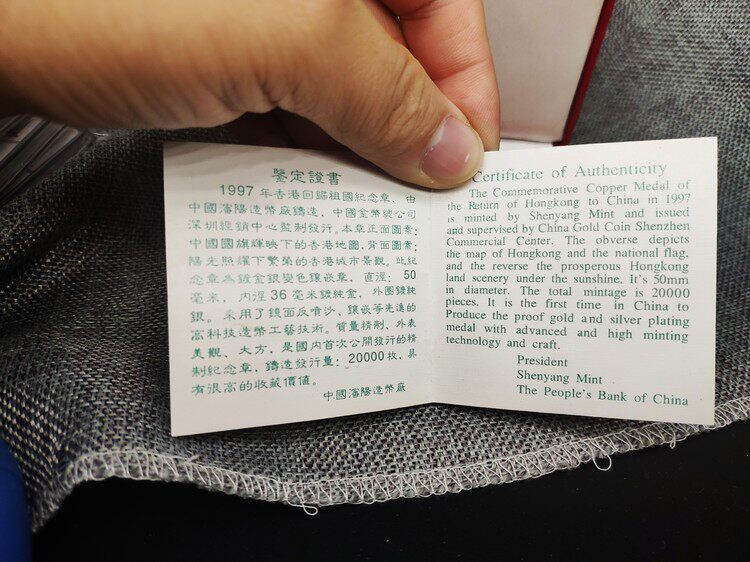 鑒定證書
1997年香港回歸祖國紀念章，由
中國瀋陽造幣廠鑄造，中國金幣總公司
深圳經銷中心監制發行。本章正面圖素：
中國國旗輝映下的香港地圖，背面圖素：
陽光照耀下繁榮的香港城市景觀。此紀
念章為鍍金銀變色鑲嵌章，直涇：50
毫米，内涇36毫米鍍純金，外圈鍍純
銀。采用了鏡面反噴沙、鑲嵌等先進的
高科技造幣工藝技術。質量精制、外表
美觀、大方，是國内首次公開發行的精
制紀念章，鑄造發行量：20000枚，具
有很高的收藏價值。
中國瀋陽造幣廠
Certificate of Authenticity
The Commemorative Copper Medal of
the Return of Hongkong to China in 1997
is minted by Shenyang Mint and issued
and supervised by China Gold Coin Shenzhen
Commercial Center. The obverse depicts
the map of Hongkong and the national flag,
and the reverse the prosperous Hongkong
land scenery under the sunshine. It's 50mm
in diameter. The total mintage is 20000
pieces. It is the first time in China to
Produce the proof gold and silver plating
medal with advanced and high minting
technology and craft.
President
Shenyang Mint
The People's Bank of China